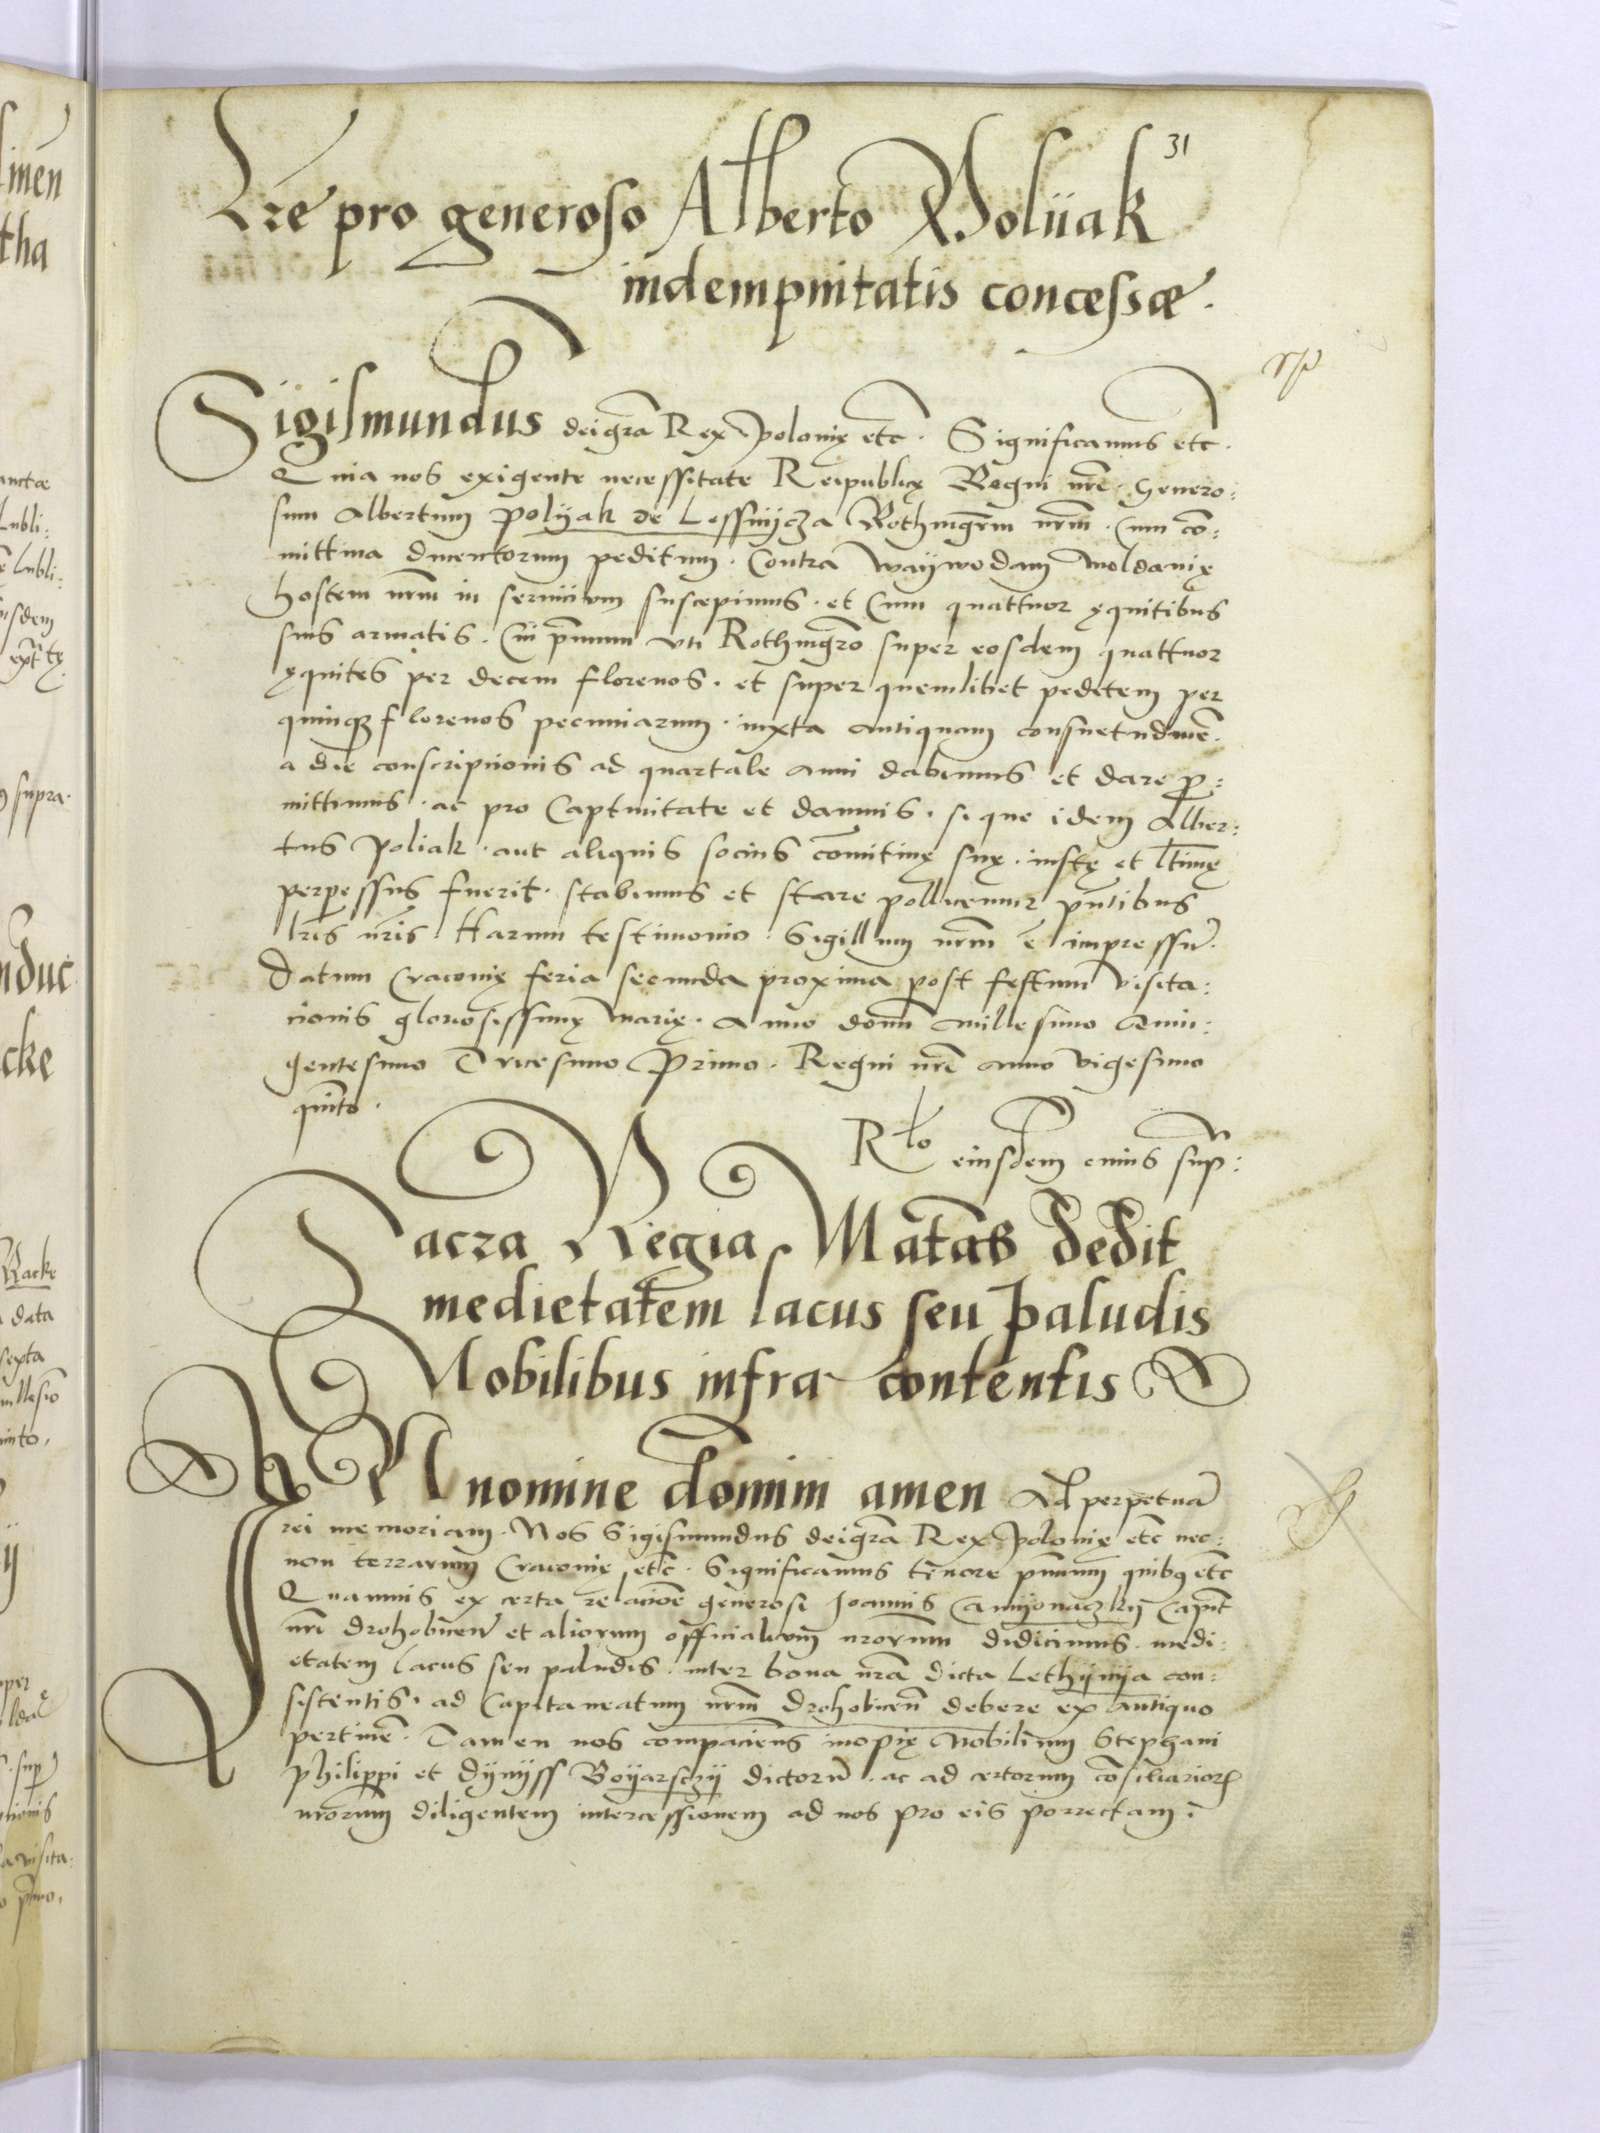 31
Lre pro generoso Alberto Polÿak
indempnitatis concessæ.
Sigismundus dei gra Rex Polonię etc. Significamus etc.
Quia nos exigente necessitate Reipublicę Regni nre. Genero:
sum Albertum Polÿak de Lessnÿcza Rothmgrm nrm. Cum co:
mittiua ducentorum peditum. Contra Waÿwodam Moldauię
hostem nrm in seruicium suscepimus. et Cum quattuor ęquitibus
suis armatis. Cui pmum vti Rothmgro super eosdem quattuor
ęquites per decem florenos. et super quemlibet peditem per
quinqz florenos pecuniarum. iuxta antiquam consuetudinē.
a die conscripcionis ad quartale anni dabimus et dare p:
mittimus. ac pro Captiuitate et damnis. si que idem Alber:
tus Poliak. aut aliquis socius comitiuę suę. iustę et ltimę
perpessus fuerit. stabimus et stare pollicemur pntibus
lris nris. Harum testimonio. Sigillum nrm ē impressū.
Datum Cracouię feria secunda proxima post festum visita:
cionis gloriosissimę Marię. Anno domi millesimo Quin:
gentesimo Tricesimo Primo. Regni nre anno vigesimo
quinto.
Rlo eiusdem cuius sup:
Sacra Regia Matas dedit
medietatem lacus seu paludis
Nobilibus infra contentis
IN nomine domini amen Ad perpetuā
rei memoriam. Nos Sigismundus dei gra Rex Polonię etc nec:
non terrarum Cracouię etc. Significamus tenore pntium quibus etc
Quamuis ex certa relacioe generosi Joannis Camÿonaczkÿ Capit
nri Drohobicen et aliorum officialium nrorum didicimus. medi:
etatem lacus seu paludis. inter bona nra dicta Lethÿnÿa con:
sistentis. ad Capitaneatum nrm Drohobicen debere ex antiquo
pertinē. Tamen nos compaciens inopię Nobilium Stephani
Philippi et Dÿnÿss Boÿarsczÿ dictorū. ac ad certorum cosiliarior
nrorum diligentem intercessionem ad nos pro eis porrectam.